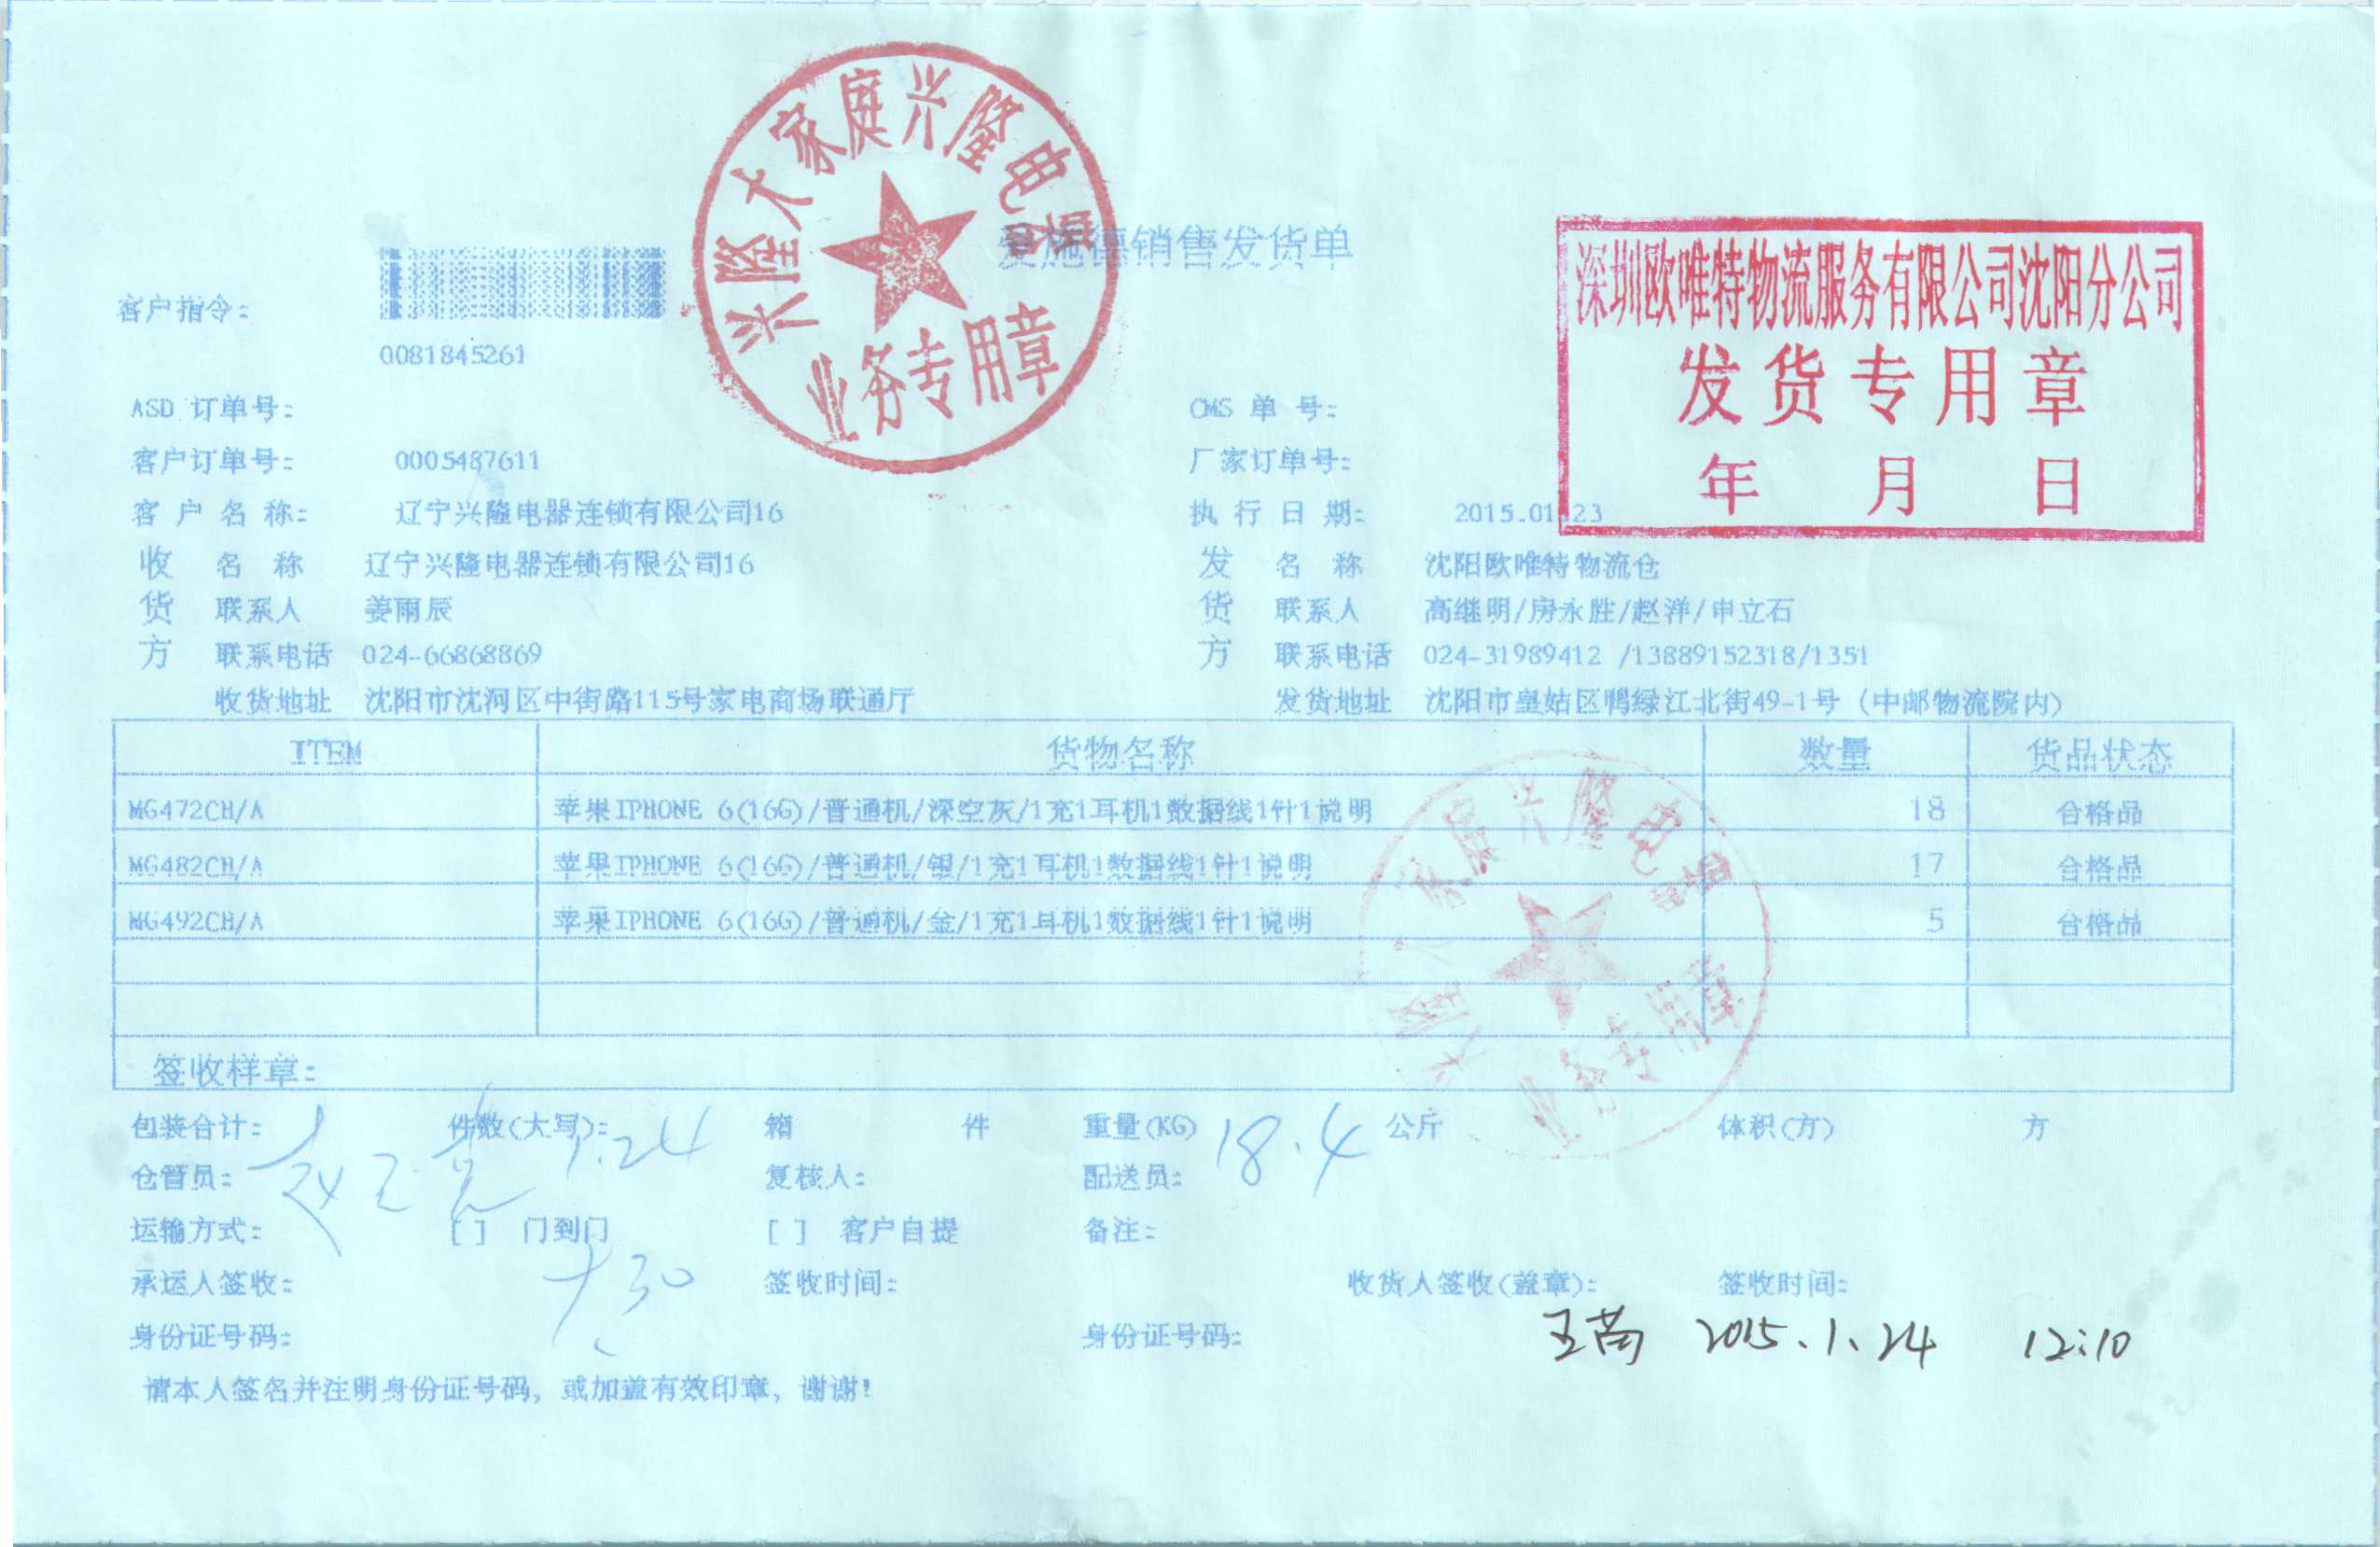 兴隆大家庭兴隆电器
业务专用章
爱施德销售发货单
深圳欧唯特物流服务有限公司沈阳分公司
发货专用章
年 月 日
客户指令:
0081845261
ASD 订单号: CMS 单 号:
客户订单号: 0005487611 厂家订单号:
客 户 名 称: 辽宁兴隆电器连锁有限公司16 执 行 日 期: 2015.01.23
收 名 称 辽宁兴隆电器连锁有限公司16 发 名 称 沈阳欧唯特物流仓
货 联系人 姜雨辰 货 联系人 高继明/房永胜/赵洋/申立石
方 联系电话 024-66868869 方 联系电话 024-31989412 /13889152318/1351
收货地址 沈阳市沈河区中街路115号家电商场联通厅 发货地址 沈阳市皇姑区鸭绿江北街49-1号(中邮物流院内)
ITEM 货物名称 数量 货品状态
MG472CH/A 苹果IPHONE 6(16G)/普通机/深空灰/1充1耳机1数据线1针1说明 18 合格品
MG482CH/A 苹果IPHONE 6(16G)/普通机/银/1充1耳机1数据线1针1说明 17 合格品
MG492CH/A 苹果IPHONE 6(16G)/普通机/金/1充1耳机1数据线1针1说明 5 合格品
家庭兴隆电器
业务专用章
签收样章:
包装合计: 件数(大写): 箱 件 重量(KG) 18.4 公斤 体积(方) 方
仓管员: 1.24 复核人: 配送员:
运输方式: [ ] 门到门 [ ] 客户自提 备注:
承运人签收: 签收时间: 收货人签收(盖章): 签收时间:
身份证号码: 身份证号码: 2015.1.24 12:10
请本人签名并注明身份证号码，或加盖有效印章，谢谢!